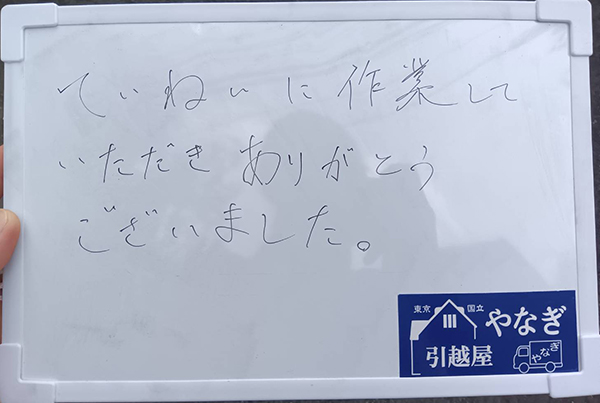 ていねいに作業して
いただきありがとう
ございました。
東京 国立
やなぎ
引越屋
やなぎ